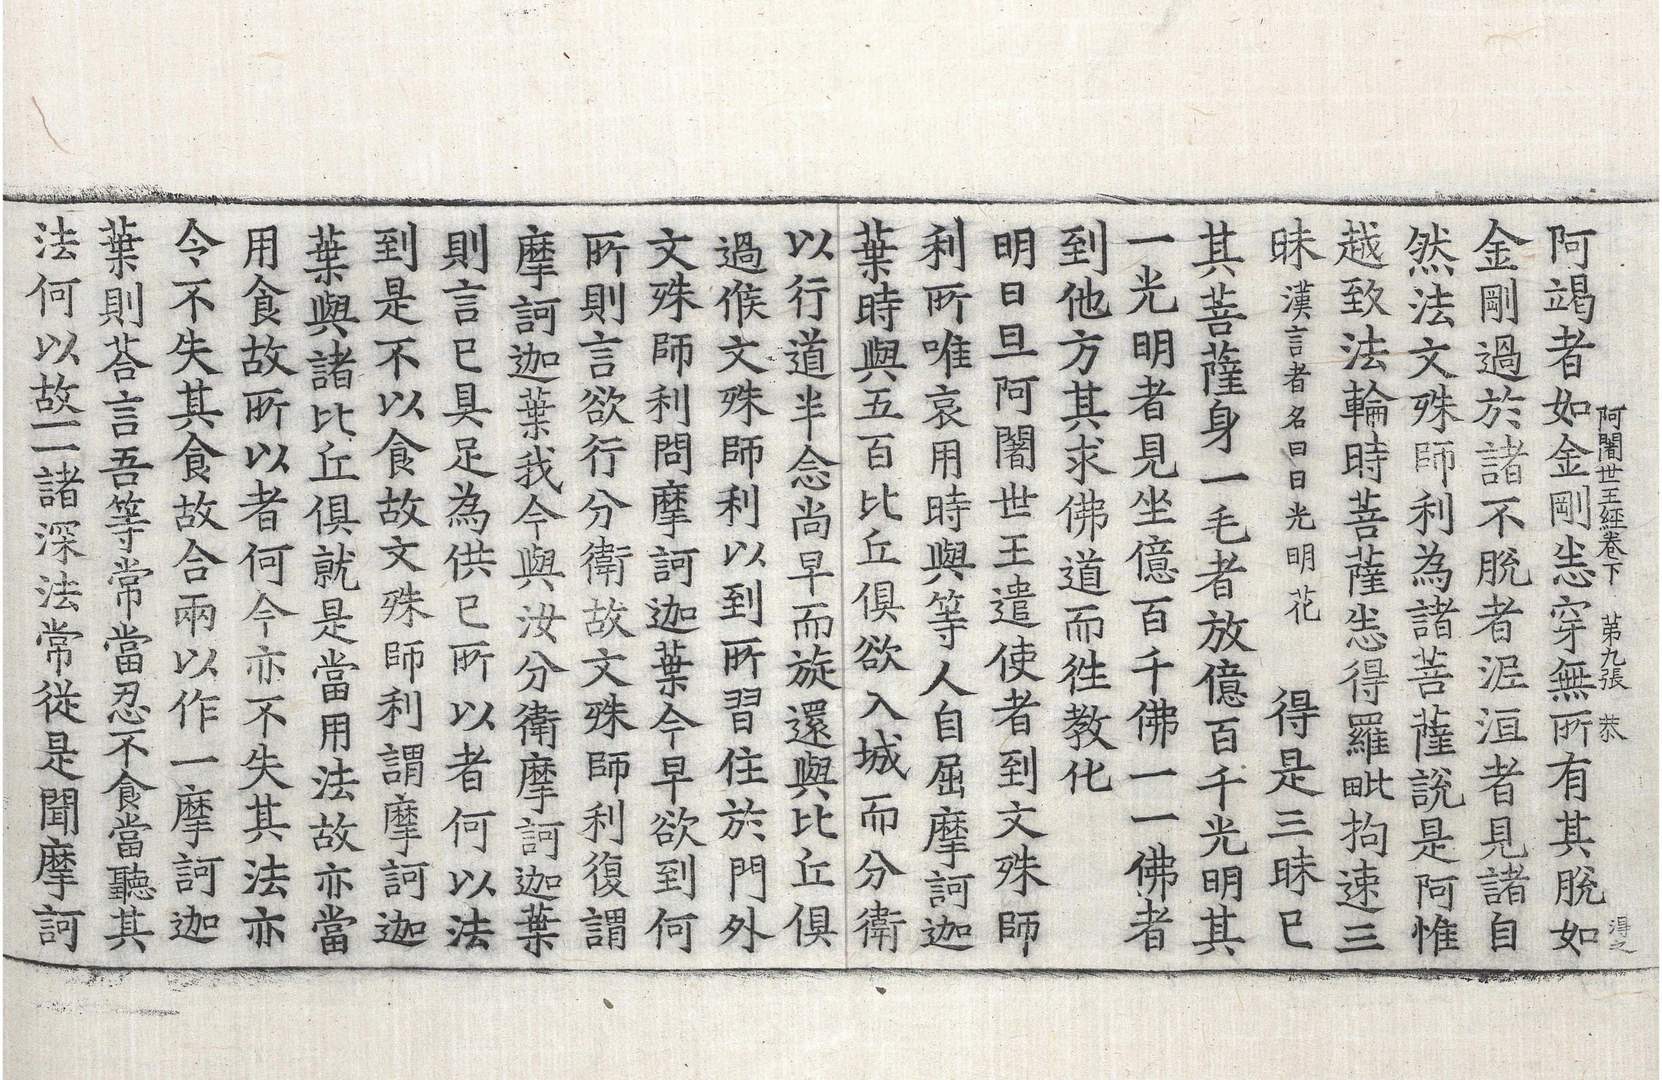 阿闍世王經卷下　第九張　恭
得之
阿竭者如金剛悉穿無所有其脫如
金剛過於諸不脫者泥洹者見諸自
然法文殊師利為諸菩薩說是阿惟
越致法輪時菩薩悉得羅毗拘速三
昧漢言者名曰日光明花　得是三昧已
其菩薩身一毛者放億百千光明其
一光明者見坐億百千佛一一佛者
到他方其求佛道而往教化
明日旦阿闍世王遣使者到文殊師
利所唯哀用時與等人自屈摩訶迦
葉時與五百比丘俱欲入城而分衛
以行道半念尚早而旋還與比丘俱
過候文殊師利以到所習住於門外
文殊師利問摩訶迦葉今早欲到何
所則言欲行分衛故文殊師利復謂
摩訶迦葉我今與汝分衛摩訶迦葉
則言已具足為供已所以者何以法
到是不以食故文殊師利謂摩訶迦
葉與諸比丘俱就是當用法故亦當
用食故所以者何今亦不失其法亦
令不失其食故合兩以作一摩訶迦
葉則荅言吾等常當忍不食當聽其
法何以故二諸深法常從是聞摩訶